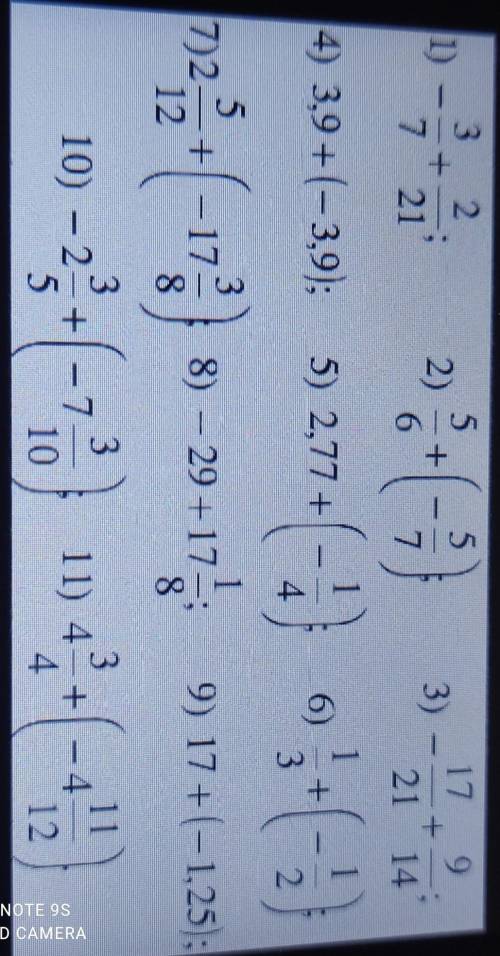 1) −3/7 + 2/21; 2) 5/6 + (−5/7); 3) −17/21 + 9/14;
4) 3,9 + (−3,9); 5) 2,77 + (−1/4); 6) 1/3 + (−1/2);
7) 2 5/12 + (−17 3/8); 8) −29 + 17 1/8; 9) 17 + (−1,25);
10) −2 3/5 + (−7 3/10); 11) 4 3/4 + (−4 11/12).
NOTE 9S
D CAMERA